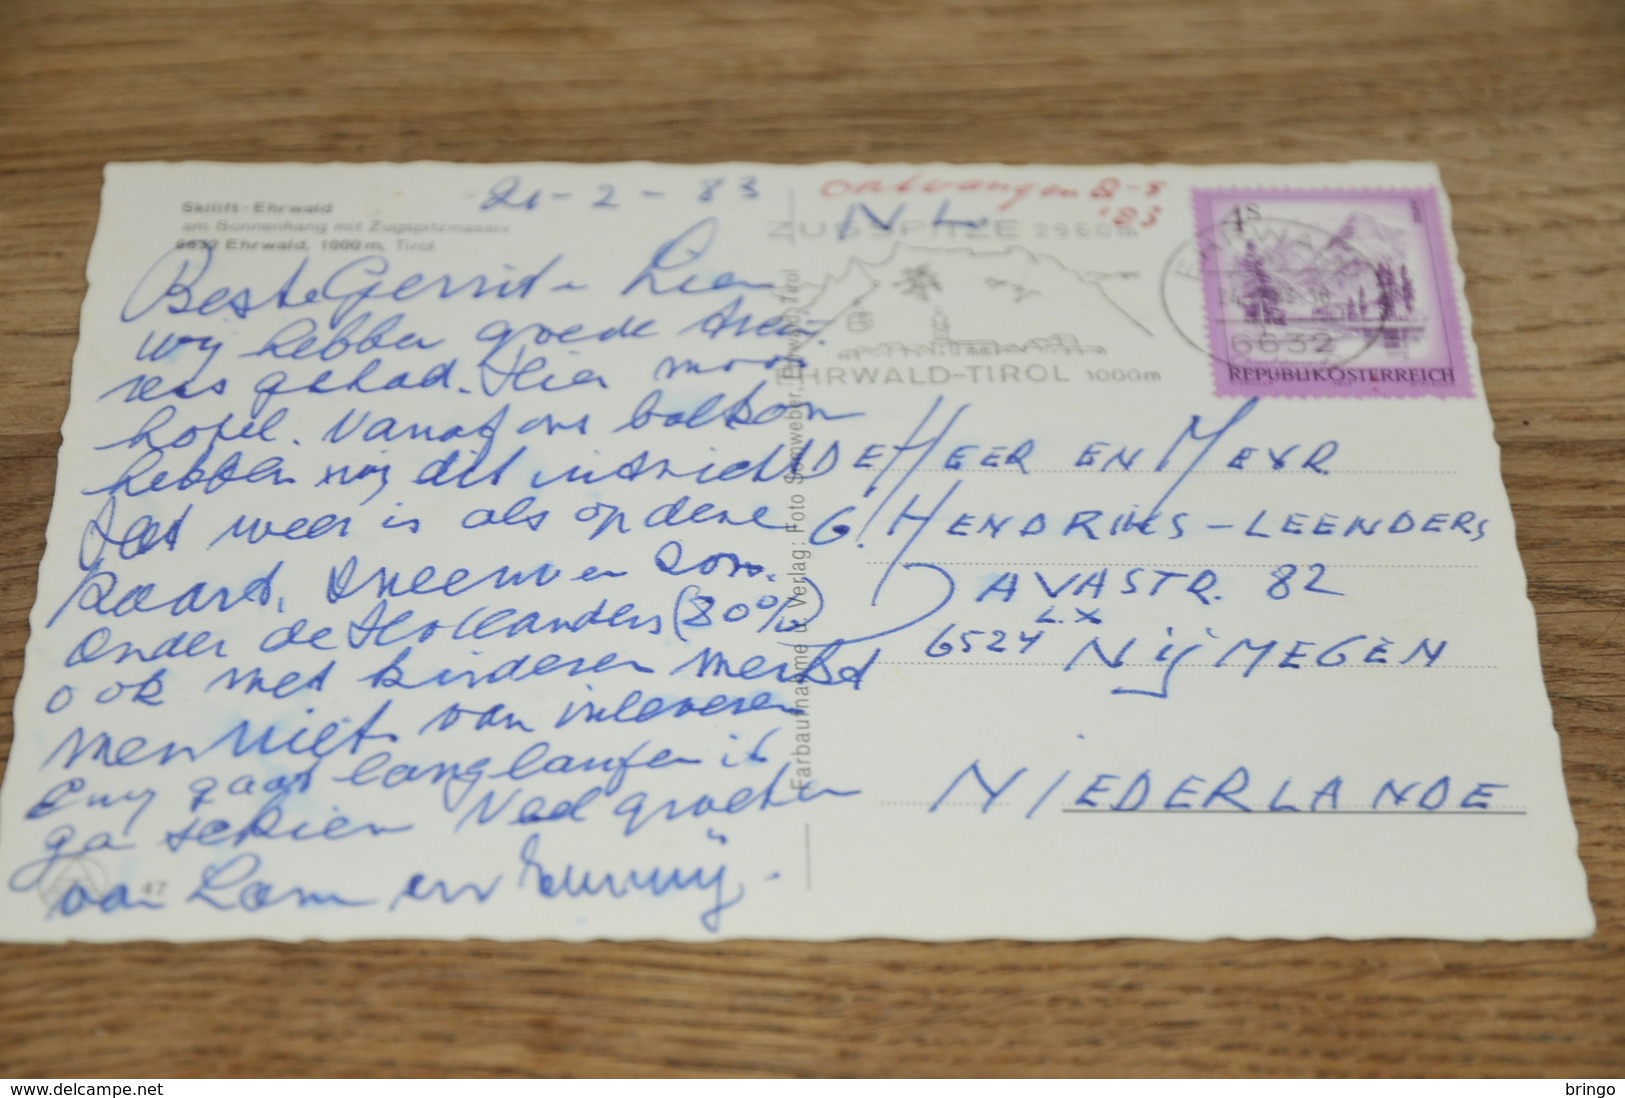 Skilift - Ehrwald
am Sonnenhang mit Zugspitzmassiv
6632 Ehrwald, 1000 m, Tirol
21-2-83
Beste Gerrit - Lien
wij hebben goede trein-
reis gehad. Hier mooi
hotel. Vanaf ons balkon
hebben wij dit uitzicht
Het weer is als op deze
kaart. Sneeuw en zon.
Onder de Hollanders (80%)
ook met kinderen merkt
men niets van inleveren
Emy gaat langlaufen ik
ga skien Veel groeten
van Lam en Emmy.
47
Farbaufnahme u. Verlag: Foto Somweber, Ehrwald, Tirol
ontvangen 8-5
'83
N.L.
ZUGSPITZE 2960m
EHRWALD-TIROL 1000m
EHRWALD
6632
4S
REPUBLIK ÖSTERREICH
DE HEER EN MEVR.
G. HENDRIKS - LEENDERS
JAVASTR. 82
L.X
6524 NIJMEGEN
NIEDERLANDE
www.delcampe.net
bringo